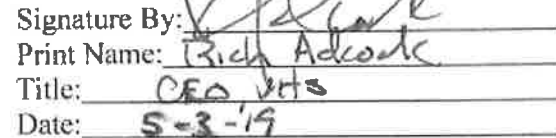 Signature By:
Print Name: Rich Adcock
Title: CEO VHS
Date: 5-3-19